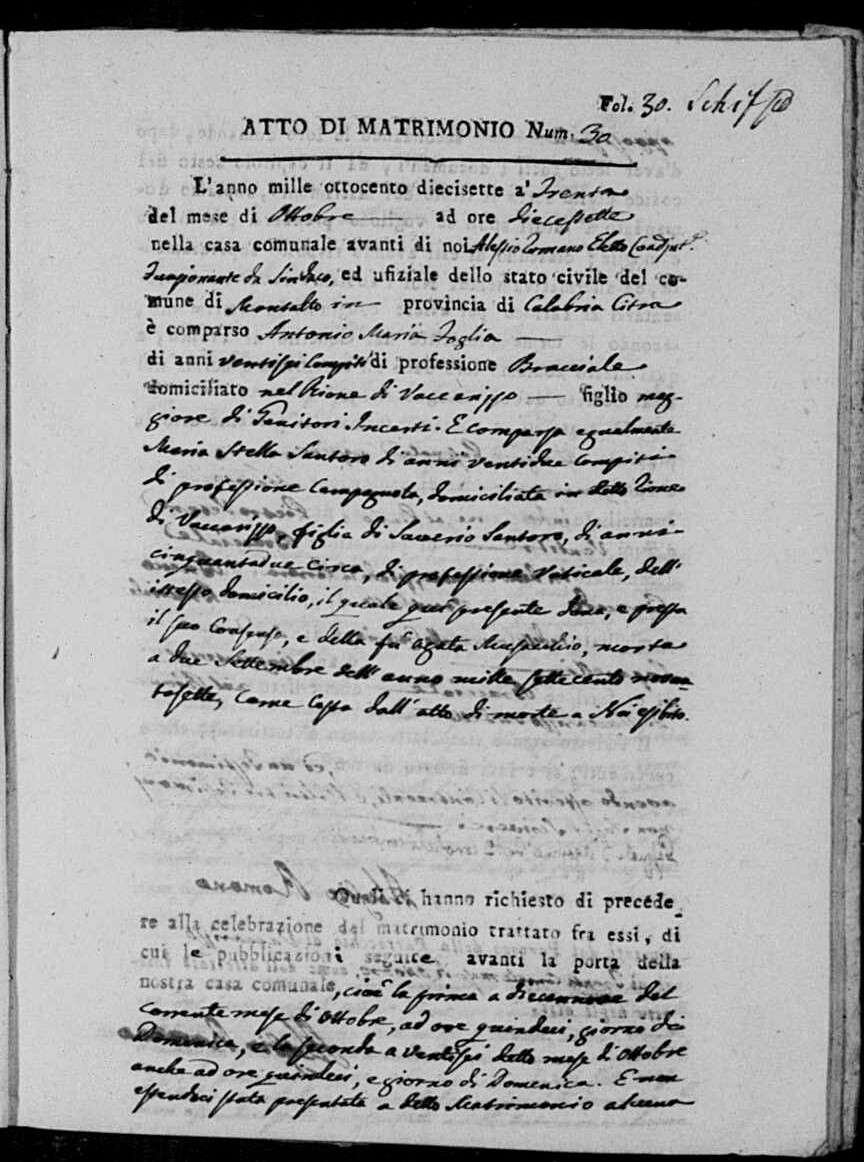 Fol. 30.
ATTO DI MATRIMONIO Num. 30
L'anno mille ottocento diecisette a' Trenta
del mese di Ottobre ad ore diecessette
nella casa comunale avanti di noi Alessio Romano Eletto
Funzionante da Sindaco, ed ufiziale dello stato civile del co-
mune di Montalto in provincia di Calabria Citra
è comparso Antonio Maria Foglia
di anni ventisei compiti di professione Bracciale
domiciliato nel Rione di Vaccarizzo figlio mag-
giore di Genitori Incerti. E comparsa egualmente
Maria Stella Santoro di anni ventidue compiti
di professione Campagnola, domiciliata in detto Rione
di Vaccarizzo, figlia di Saverio Santoro, di anni
cinquantadue circa, di professione Vaticale, dell'
istesso domicilio, il quale qui presente dona, e pressa
il suo Consenso, e della fu Agata, morta
a due Settembre dell'anno mille settecento novan-
tasette, come costa dall'atto di morte a Noi esibito.
Quali hanno richiesto di precede-
re alla celebrazione del matrimonio trattato fra essi, di
cui le pubblicazioni seguite avanti la porta della
nostra casa comunale, cioè la prima a diecennove del
corrente mese di Ottobre, ad ore quindeci, giorno di
Domenica, e la seconda a ventisei detto mese di Ottobre
anche ad ore quindeci, e giorno di Domenica. E non
essendoci stata presentata a detto Matrimonio alcuna